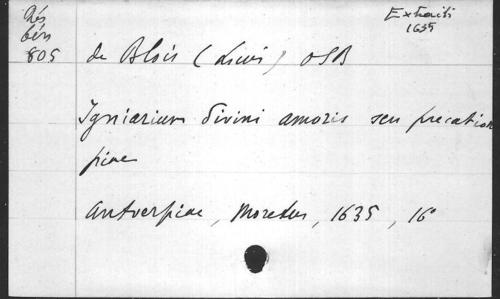 Rés
bén
805
Extraits
1635
de Blois (Louis) OSB
Igniarium divini amoris seu precation
piae
Antverpiae, Moretus, 1635, 16°